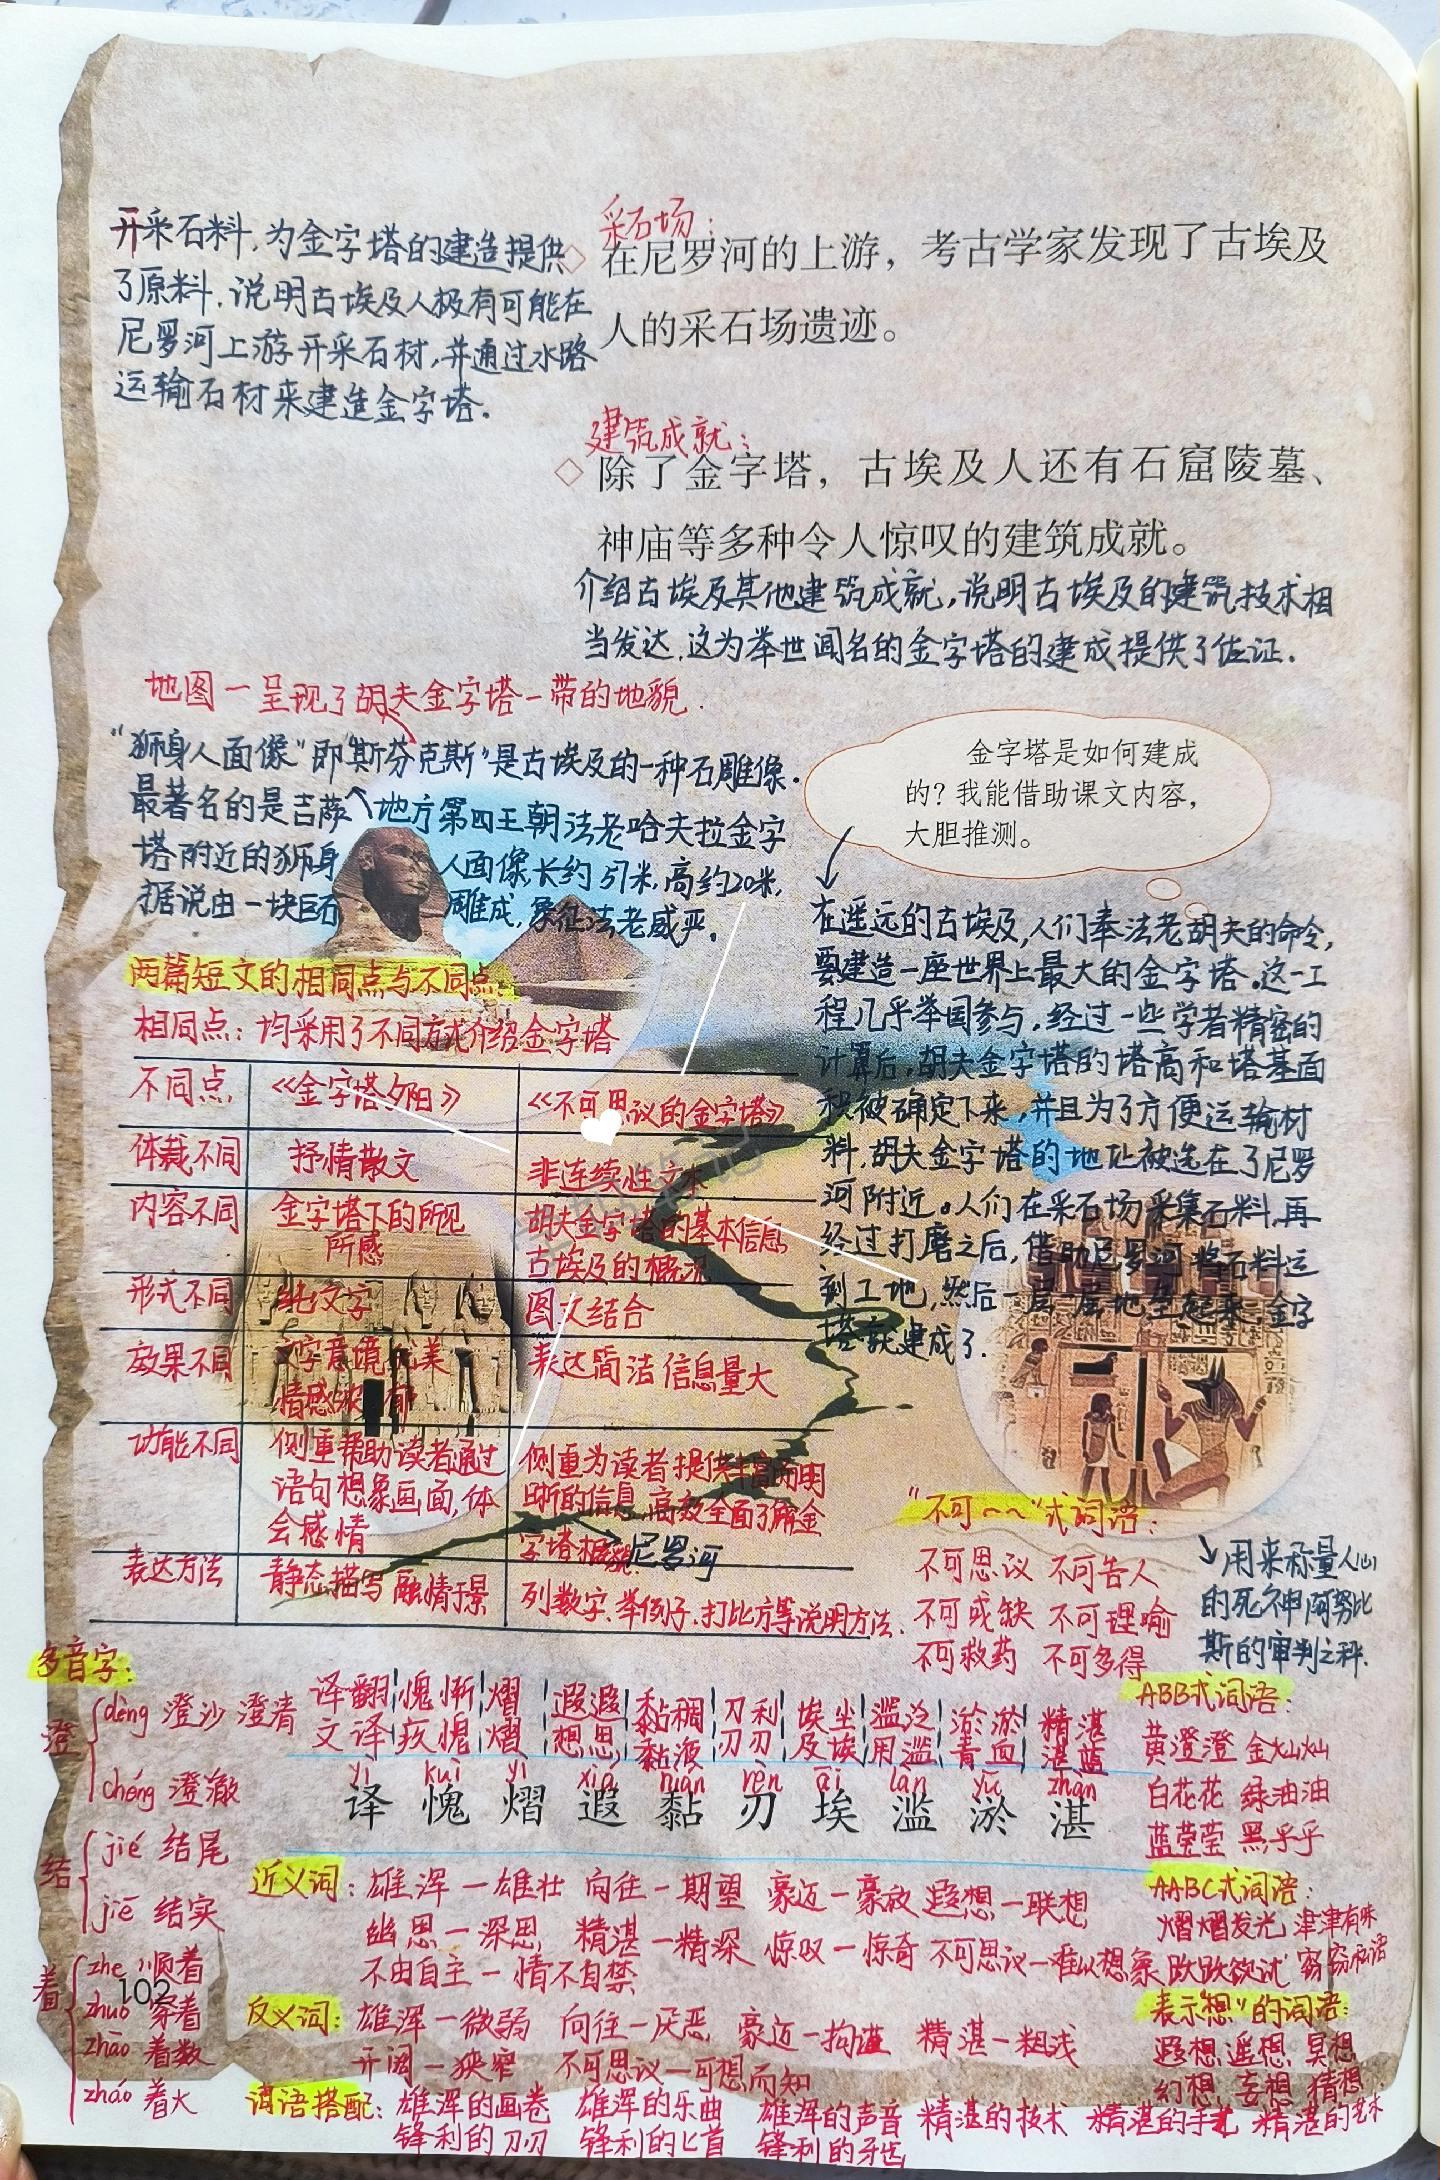 开采石料,为金字塔的建造提供
了原料,说明古埃及人极有可能在
尼罗河上游开采石材,并通过水路
运输石材来建造金字塔.
采石场:
◇ 在尼罗河的上游，考古学家发现了古埃及
人的采石场遗迹。
建筑成就:
◇ 除了金字塔，古埃及人还有石窟陵墓、
神庙等多种令人惊叹的建筑成就。
介绍古埃及其他建筑成就,说明古埃及的建筑技术相
当发达,这为举世闻名的金字塔的建成提供了佐证.
地图一呈现了胡夫金字塔一带的地貌.
“狮身人面像”即“斯芬克斯”是古埃及的一种石雕像.
最著名的是吉萨地方第四王朝法老哈夫拉金字
塔附近的狮身人面像,长约57米,高约20米,
据说由一块巨石雕成,象征法老威严.
金字塔是如何建成
的？我能借助课文内容，
大胆推测。
在遥远的古埃及,人们奉法老胡夫的命令,
要建造一座世界上最大的金字塔.这一工
程几乎举国参与,经过一些学者精密的
计算后,胡夫金字塔的塔高和塔基面
积被确定下来,并且为了方便运输材
料,胡夫金字塔的地址被选在了尼罗
河附近。人们在采石场采集石料,再
经过打磨之后,借助尼罗河将石料运
到工地,然后一层一层地垒起来,金字
塔就建成了.
两篇短文的相同点与不同点
相同点:均采用了不同方式介绍金字塔
不同点 《金字塔夕阳》 《不可思议的金字塔》
体裁不同 抒情散文 非连续性文本
内容不同 金字塔下的所见 胡夫金字塔的基本信息
所感 古埃及的概况
形式不同 纯文字 图文结合
效果不同 文字意境优美 表达简洁 信息量大
情感浓郁
功能不同 侧重帮助读者通过 侧重为读者提供丰富而明
语句想象画面,体 晰的信息,高效全面了解金
会感情 字塔相貌
尼罗河
表达方法 静态描写 融情于景 列数字、举例子、打比方等说明方法.
“不可~~”式词语:
不可思议 不可告人
不可或缺 不可理喻
不可救药 不可多得
用来称量人心
的死神阿努比
斯的审判之秤.
多音字:
澄 dèng 澄沙 澄清
chéng 澄澈
结 jié 结尾
jiē 结实
着 zhe 顺着
zhuó 穿着
zhāo 着数
zháo 着火
译翻 愧惭 熠 遐遐 黏稠 刀利 埃尘 滥泛 淤淤 精湛
文译 疚愧 熠 想思 黏液 刃刃 及埃 用滥 青血 湛蓝
yì kuì yì xiá nián rèn āi làn yū zhàn
译 愧 熠 遐 黏 刃 埃 滥 淤 湛
近义词:雄浑—雄壮 向往—期望 豪迈—豪放 遐想—联想
幽思—深思 精湛—精深 惊叹—惊奇 不可思议—难以想象
不由自主—情不自禁
反义词:雄浑—微弱 向往—厌恶 豪迈—拘谨 精湛—粗浅
开阔—狭窄 不可思议—可想而知
词语搭配:雄浑的画卷 雄浑的乐曲 雄浑的声音 精湛的技术 精湛的手艺 精湛的艺术
锋利的刀刃 锋利的匕首 锋利的牙齿
ABB式词语:
黄澄澄 金灿灿
白花花 绿油油
蓝莹莹 黑乎乎
AABC式词语:
熠熠发光 津津有味
跃跃欲试 窃窃私语
表示“想”的词语:
遐想 遥想 冥想
幻想 妄想 猜想
102